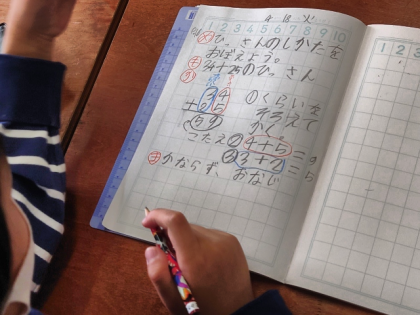 4 18 火
1 2 3 4 5 6 7 8 9 10
め ひっさんのしかたを
おぼえよう。
も 34+25のひっさん
34
+25
59
①くらいを
そろえて
かく
こたえ ② 4+5=9
③ 3+2=5
ま かならず、おなじ
1 2 3